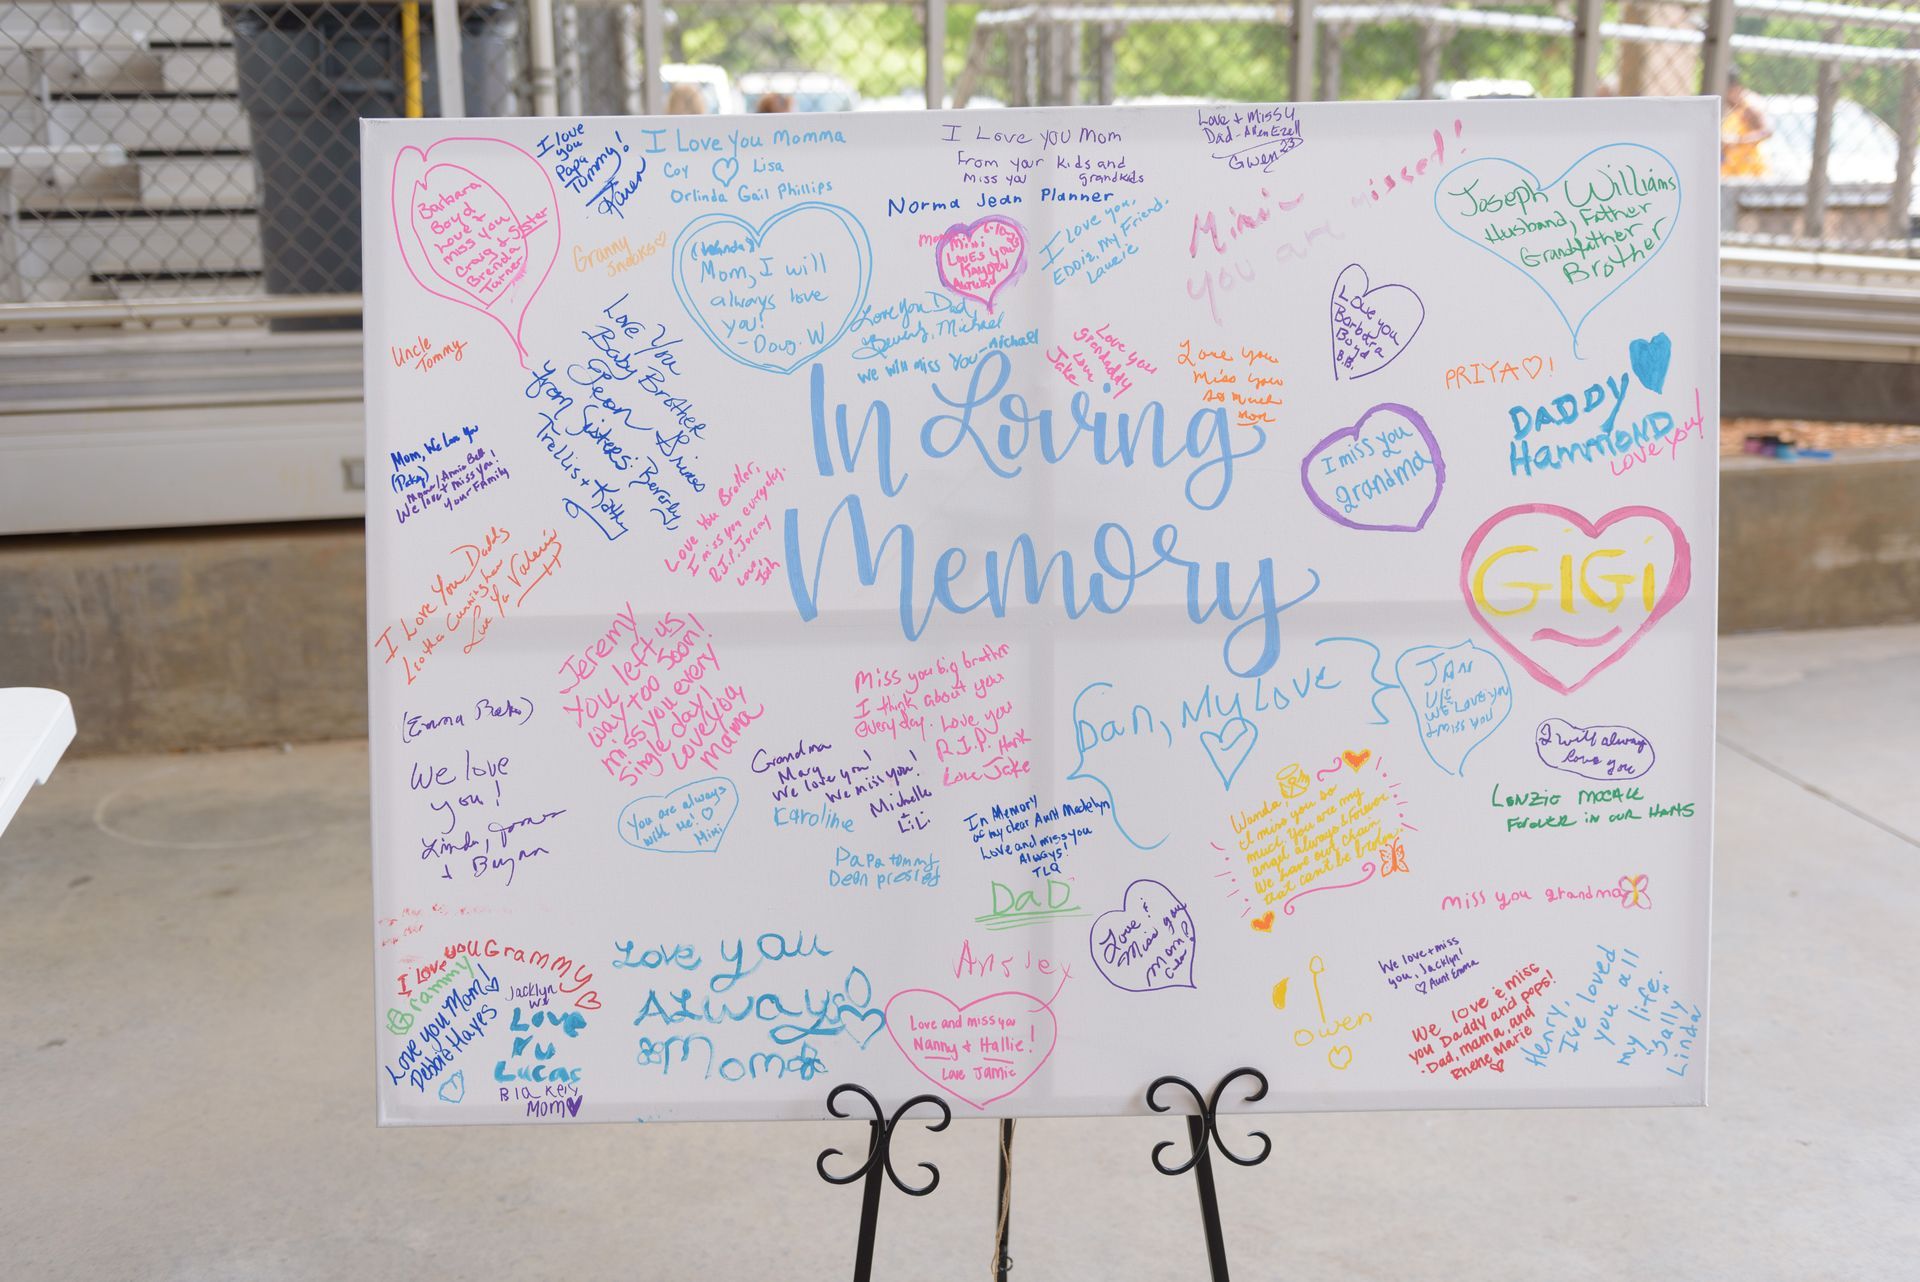 In Loving
Memory
Barbara
Boyd
Love +
miss you
Craig + Sister
Brenda
Turner
I love
you
Papa
Tommy!
Karen
I Love You Momma
Coy Lisa
Orlinda Gail Phillips
I Love you Mom
From your kids and
Miss you grandkids
Norma Jean Planner
Love + Miss U
Dad - Allen Ezell
Gwen
Mimi -
you are missed!
Joseph Williams
Husband, Father
Grandfather
Brother
Granny
Snooks
(Wanda)
Mom, I will
always love
you!
- Doug. W
Mimi
Loves you
Kayden
I love you,
Eddie. My Friend.
Laurie
Uncle
Tommy
Love You
Baby Brother
Sean Grimes
from Sisters: Beverly,
Trellis + Kathy
Love You Dad,
Beverly, Michael
We will miss You - Michael
Love you
grandaddy
Love
Jake
Love you
Miss you
so much
mom
Love you
Barbara
Boyd
B.B.
PRIYA♡!
DADDY
Hammond
Love you!
Mom, We Love You
(Patsy)
Mama/Annie Bell
We love + miss you!
Your Family
Love You Brother,
I miss you everyday.
R.I.P. Jeremy
Love,
Josh
I miss you
grandma
GiGi
I Love You Daddy
Love Ya Valerie
Jeremy
You left us
way too soon!
miss you every
single day!
Love you
mama
Miss you big brother
I think about you
everyday. Love you
R.I.P. Hank
Love Jake
Dan, My Love
JAN
We Love you
+ miss you
I will always
love you
We love
you!
Linda, James
+
Grandma
Mary
We love you!
We miss you!
Michelle
+ LiLi
You are always
with me! ♡
Mimi
Karoline
Papa tommy
Dean presley
In Memory
of my dear Aunt Madelyn
Love and miss you
Always!
TLQ
Wanda
I miss you so
much. You are my
angel always & forever
We have our chain
that can't be broken.
LENZIE McCALL
Forever in our Harts
DaD
Love &
Miss you
Mom!
miss you grandma
I love you Grammy
Grammy
Love you Mom!
Debbie Hayes
Jacklyn
we
Love
yu
Lucas
Blakely
Mom
Love you
ALWAYS
Mom
Love and miss you
Nanny & Hallie!
Love Jamie
Owen
We love + miss
you, Jacklyn!
♡ Aunt Emma
We love & miss
you Daddy and pops!
- Dad, mama, and
Rhene Marie
Henry,
I've loved
you all
my life.
"Sally"
Linda